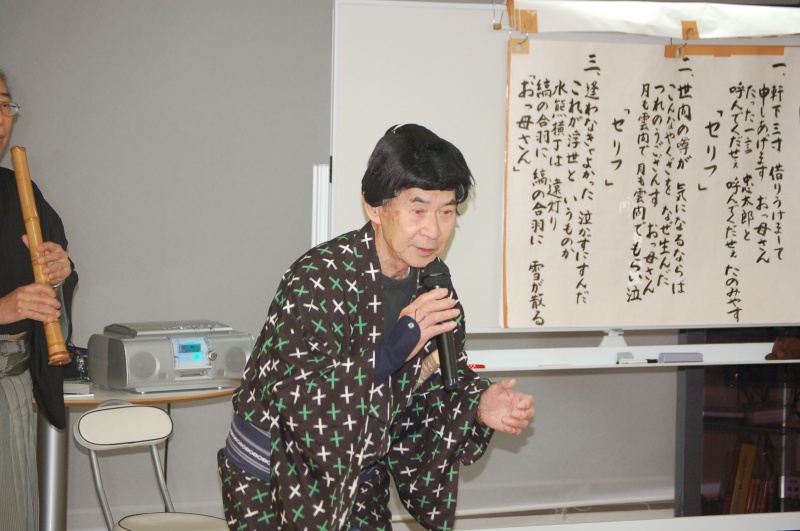 一、軒下三寸 借りうけまして
申しあげます おっ母さん
たった一言 忠太郎と
呼んでくだせぇ 呼んでくだせぇ たのみやす
「セリフ」
二、世間の噂が 気になるならば
こんなやくざを なぜ生んだ
つれのうござんす おっ母さん
月も雲間で 月も雲間でもらい泣
「セリフ」
三、逢わなきゃよかった 泣かずにすんだ
これが浮世と いうものか
水熊横丁は 遠灯り
縞の合羽に 縞の合羽に 雪が散る
「おっ母さん」